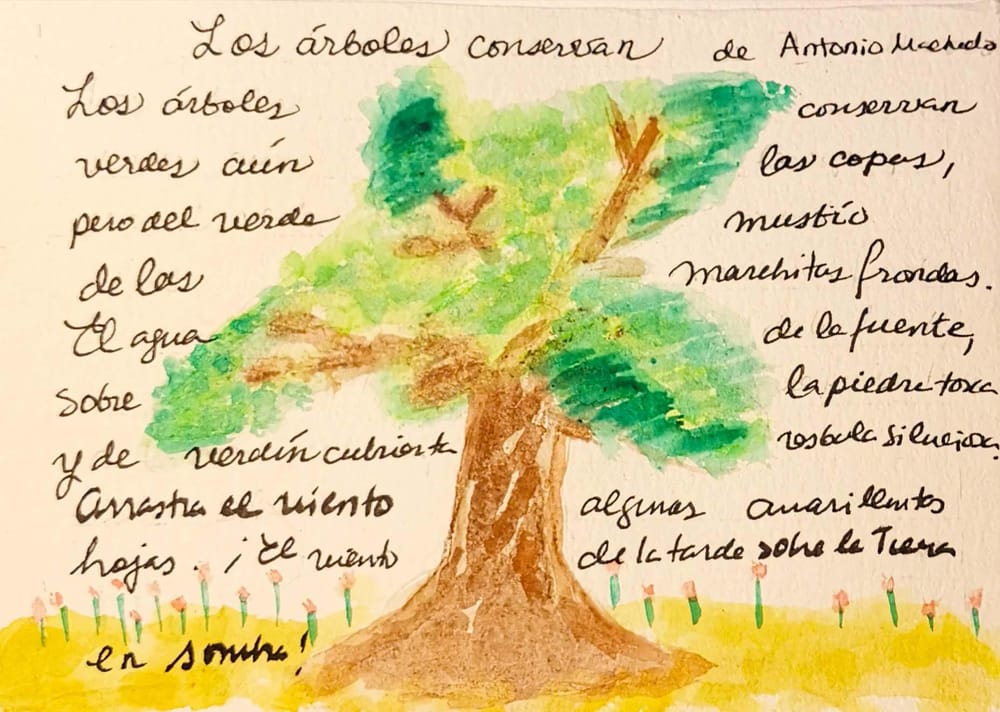 Los árboles conservan de Antonio Machado
Los árboles conservan
verdes aún las copas,
pero del verde mustio
de las marchitas frondas.
El agua de la fuente,
sobre la piedra tosca
y de verdín cubierta resbala silenciosa.
Arrastra el viento algunas amarillentas
hojas. ¡El viento de la tarde sobre la Tierra
en sombra!